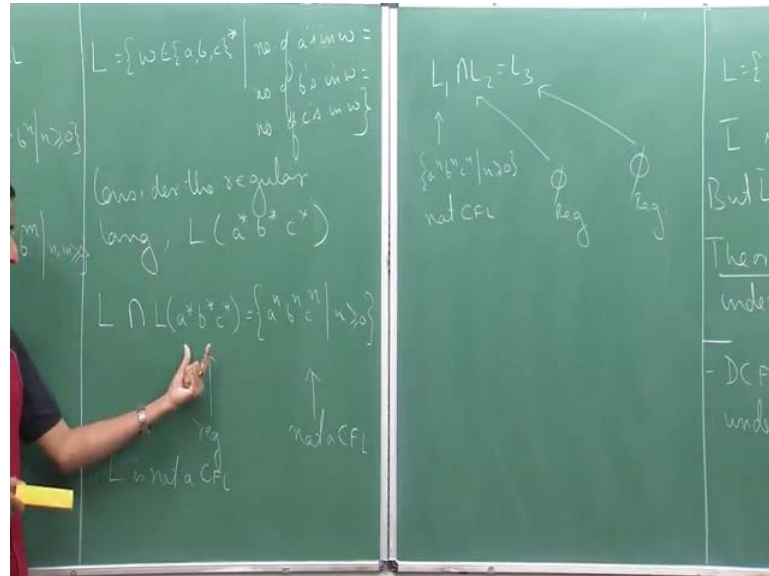 b^n | n ≥ 0}
b^m | n, m ≥
L = {w ∈ {a, b, c}* | no. of a's in w =
no. of b's in w =
no. of c's in w}
Consider the regular
lang, L(a* b* c*)
L ∩ L(a* b* c*) = {a^n b^n c^n | n ≥ 0}
reg
not a CFL
L is not a CFL
L₁ ∩ L₂ = L₃
{a^n b^n c^n | n ≥ 0}
not CFL
∅
Reg
∅
Reg
L = {
L̅
But L̅
Theor
unde
- DCF
unde